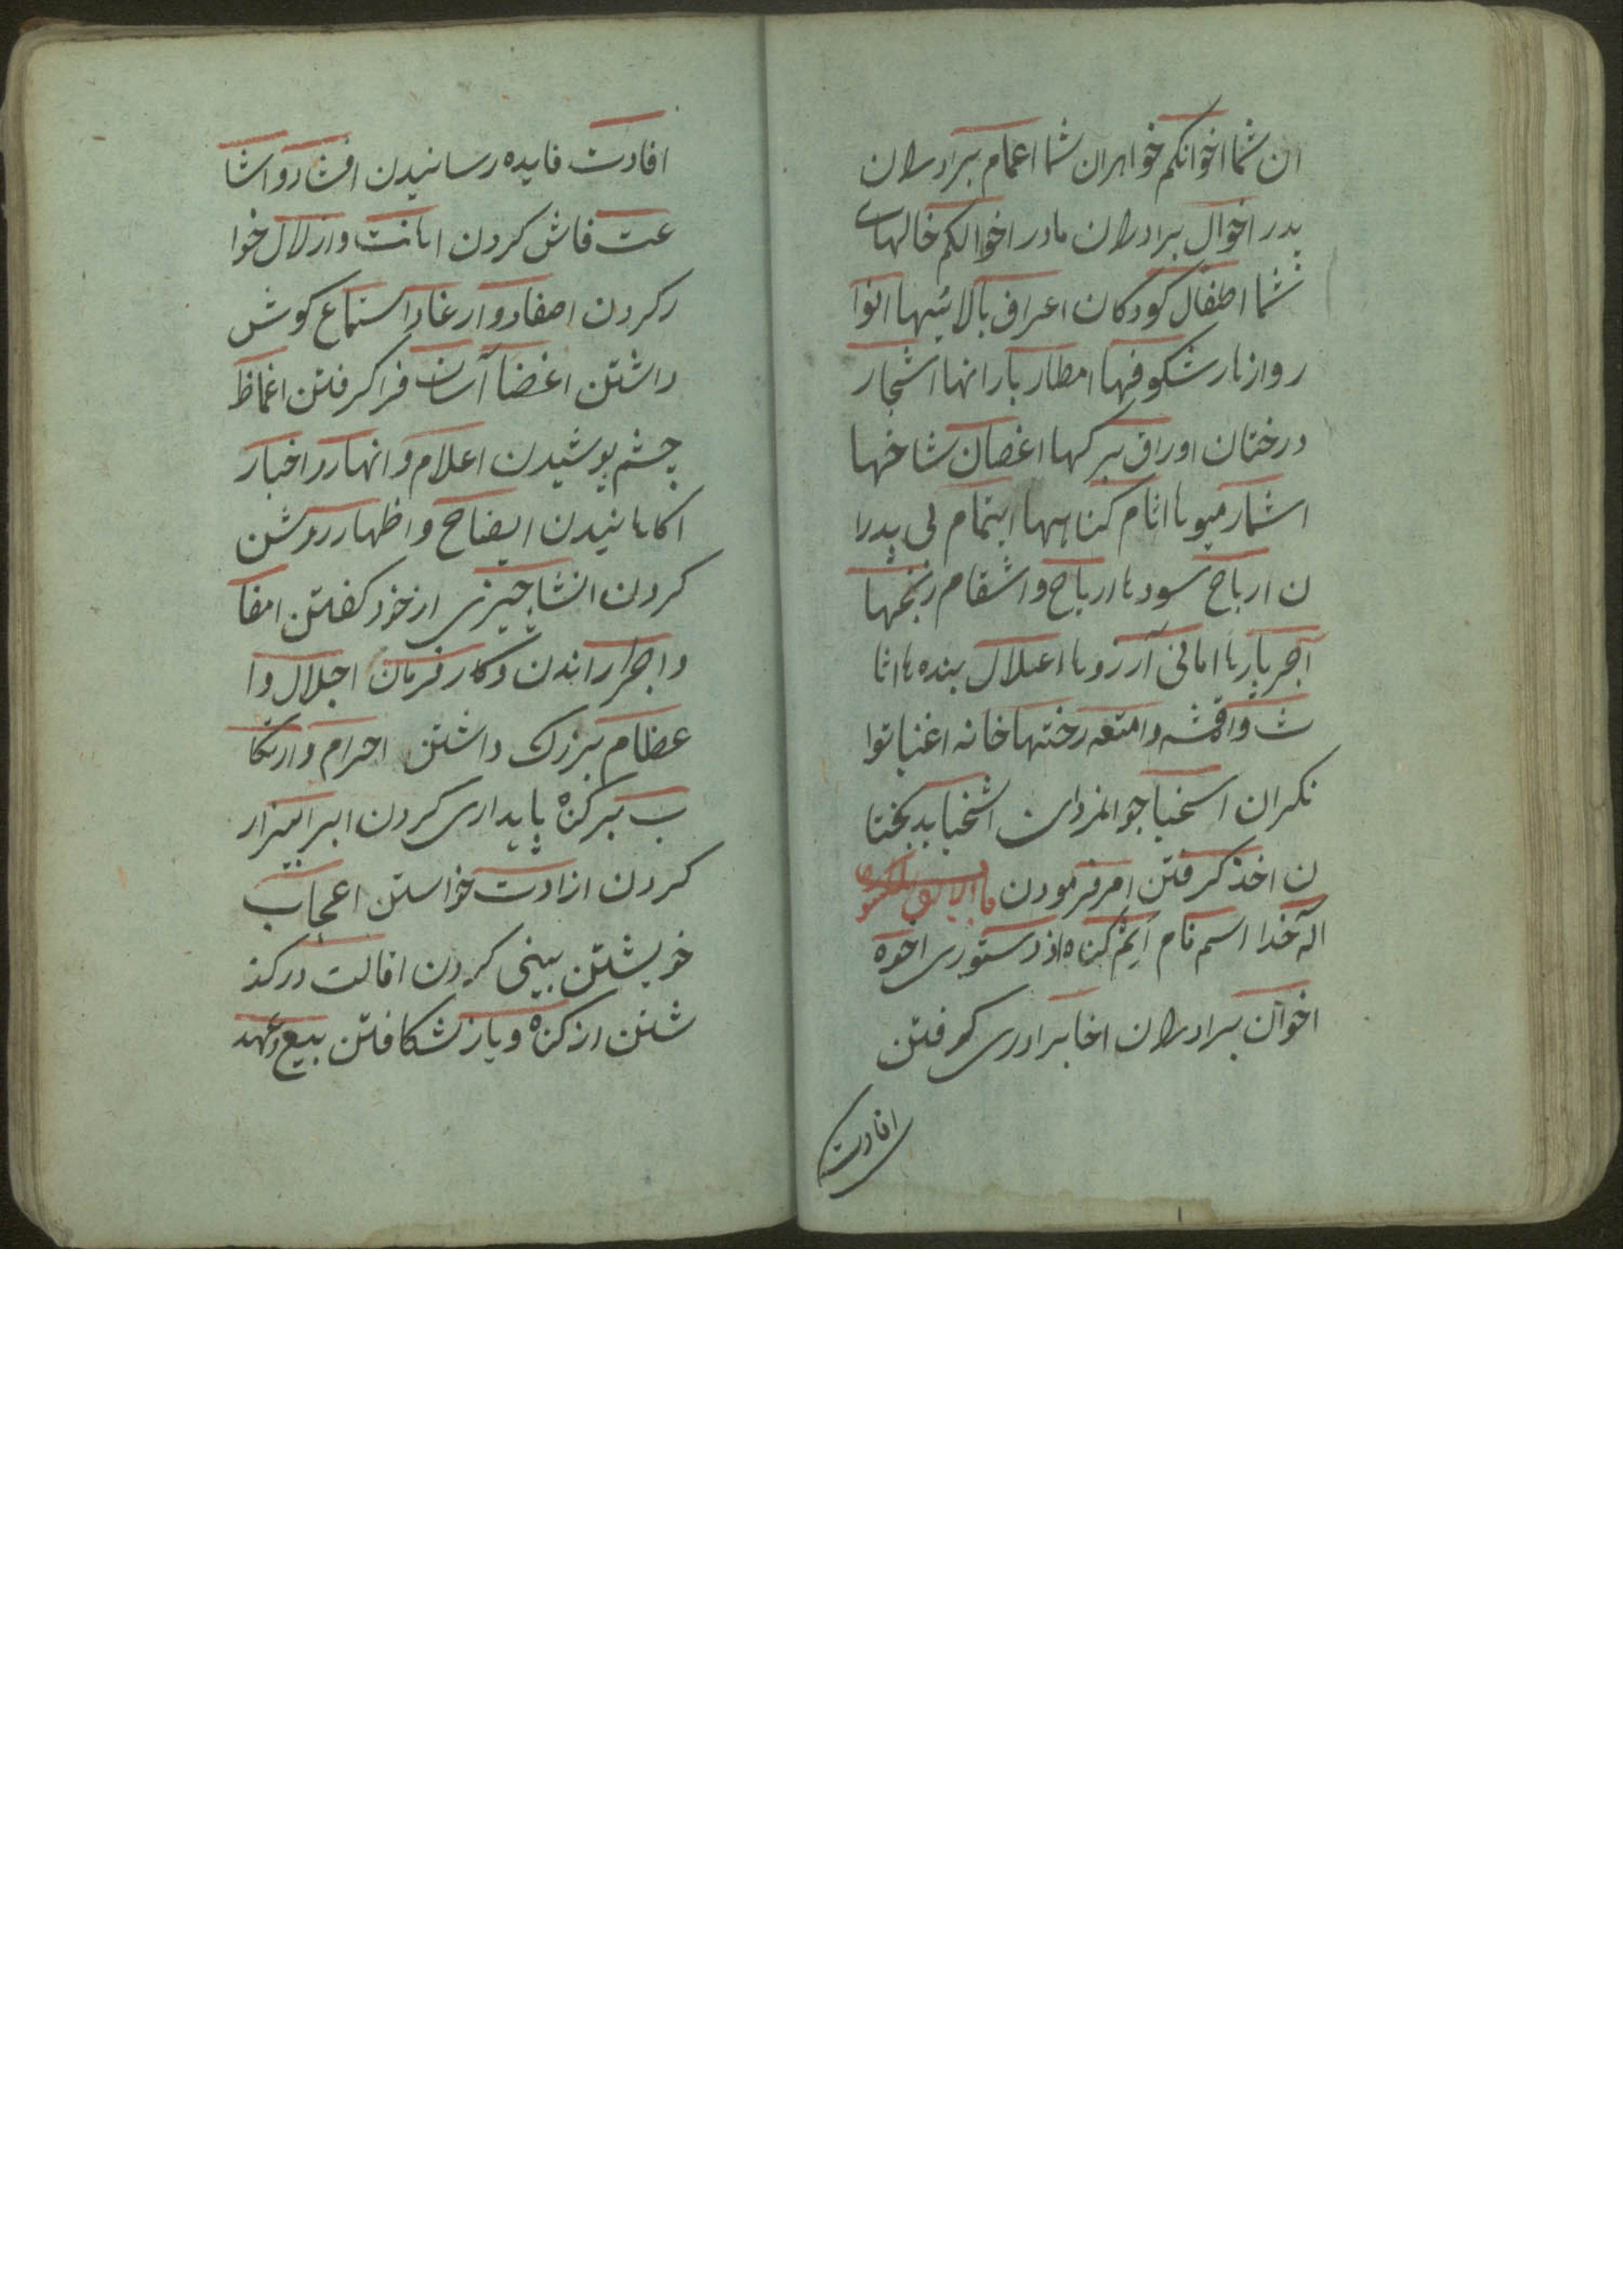 ان شما اخوانکم خواهران شما اعمام برادران
پدر اخوال برادران مادر اخوالکم خالهای
شما اطفال کودکان اعراف بالائیها انوا
ر وازهار شکوفها امطار بارانها اشجار
درختان اوراق برکها اغصان شاخها
اثمار میوها اثام کناهها ایتام بی پدرا
ن ارباح سودها ارباح واسقام رنجها
آجر امانی آرزوها بنده ها اثا
ث واقمشه وامتعه رختها خانه اغنیا توا
نکران اسخیا جوانمردان اشقیا بدبختا
ن اخذ کرفتن امر فرمودن
اله خدا اسم نام اثم کناه اذن دستوری اخوه
اخوان برادران اخا برادری کرفتن
افادت
افادت فایده رسانیدن افشا و اشا
عت فاش کردن اهانت واذلال خوا
ر کردن اصغا و ارعا و استماع کوش
داشتن اغضا آسان فرا کرفتن اغماظ
چشم پوشیدن اعلام و انها و اخبار
اکاهانیدن ایضاح و اظهار روشن
کردن انشا چیزی از خود کفتن امضا
و اجرا راندن و کار فرمان اجلال وا
عظام بزرک داشتن اجرام و ارتکا
ب بر کناه پایداری کردن ابرا بیزار
کردن ارادت خواستن اعجاب
خویشتن بینی کردن اقالت درکذ
شتن از کناه و باز شکافتن بیع وعهد